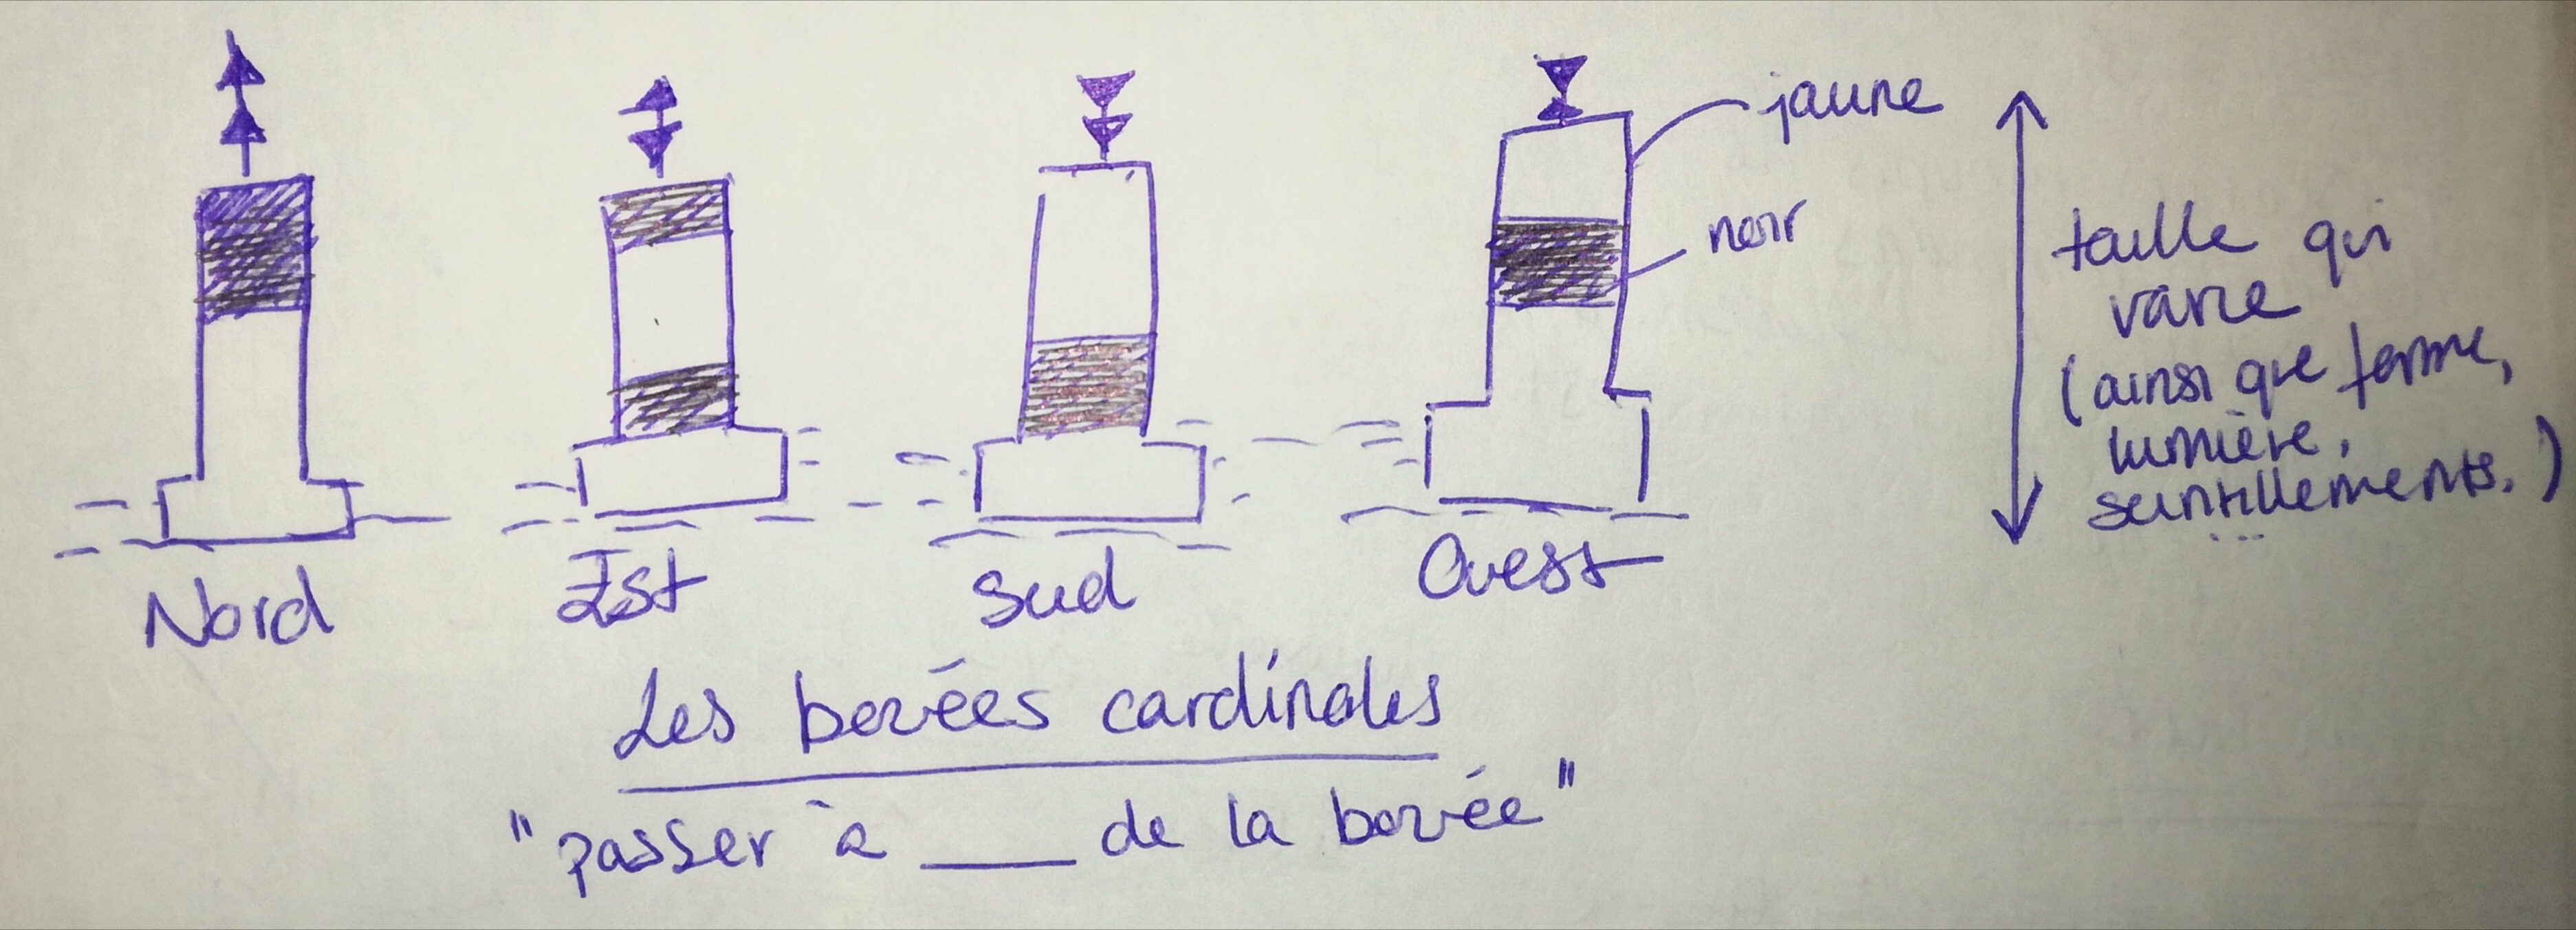 jaune
noir
taille qui
varie
(ainsi que forme,
lumière,
scintillements.)
...
Nord
Est
Sud
Ouest
Les bouées cardinales
"passer à ___ de la bouée"